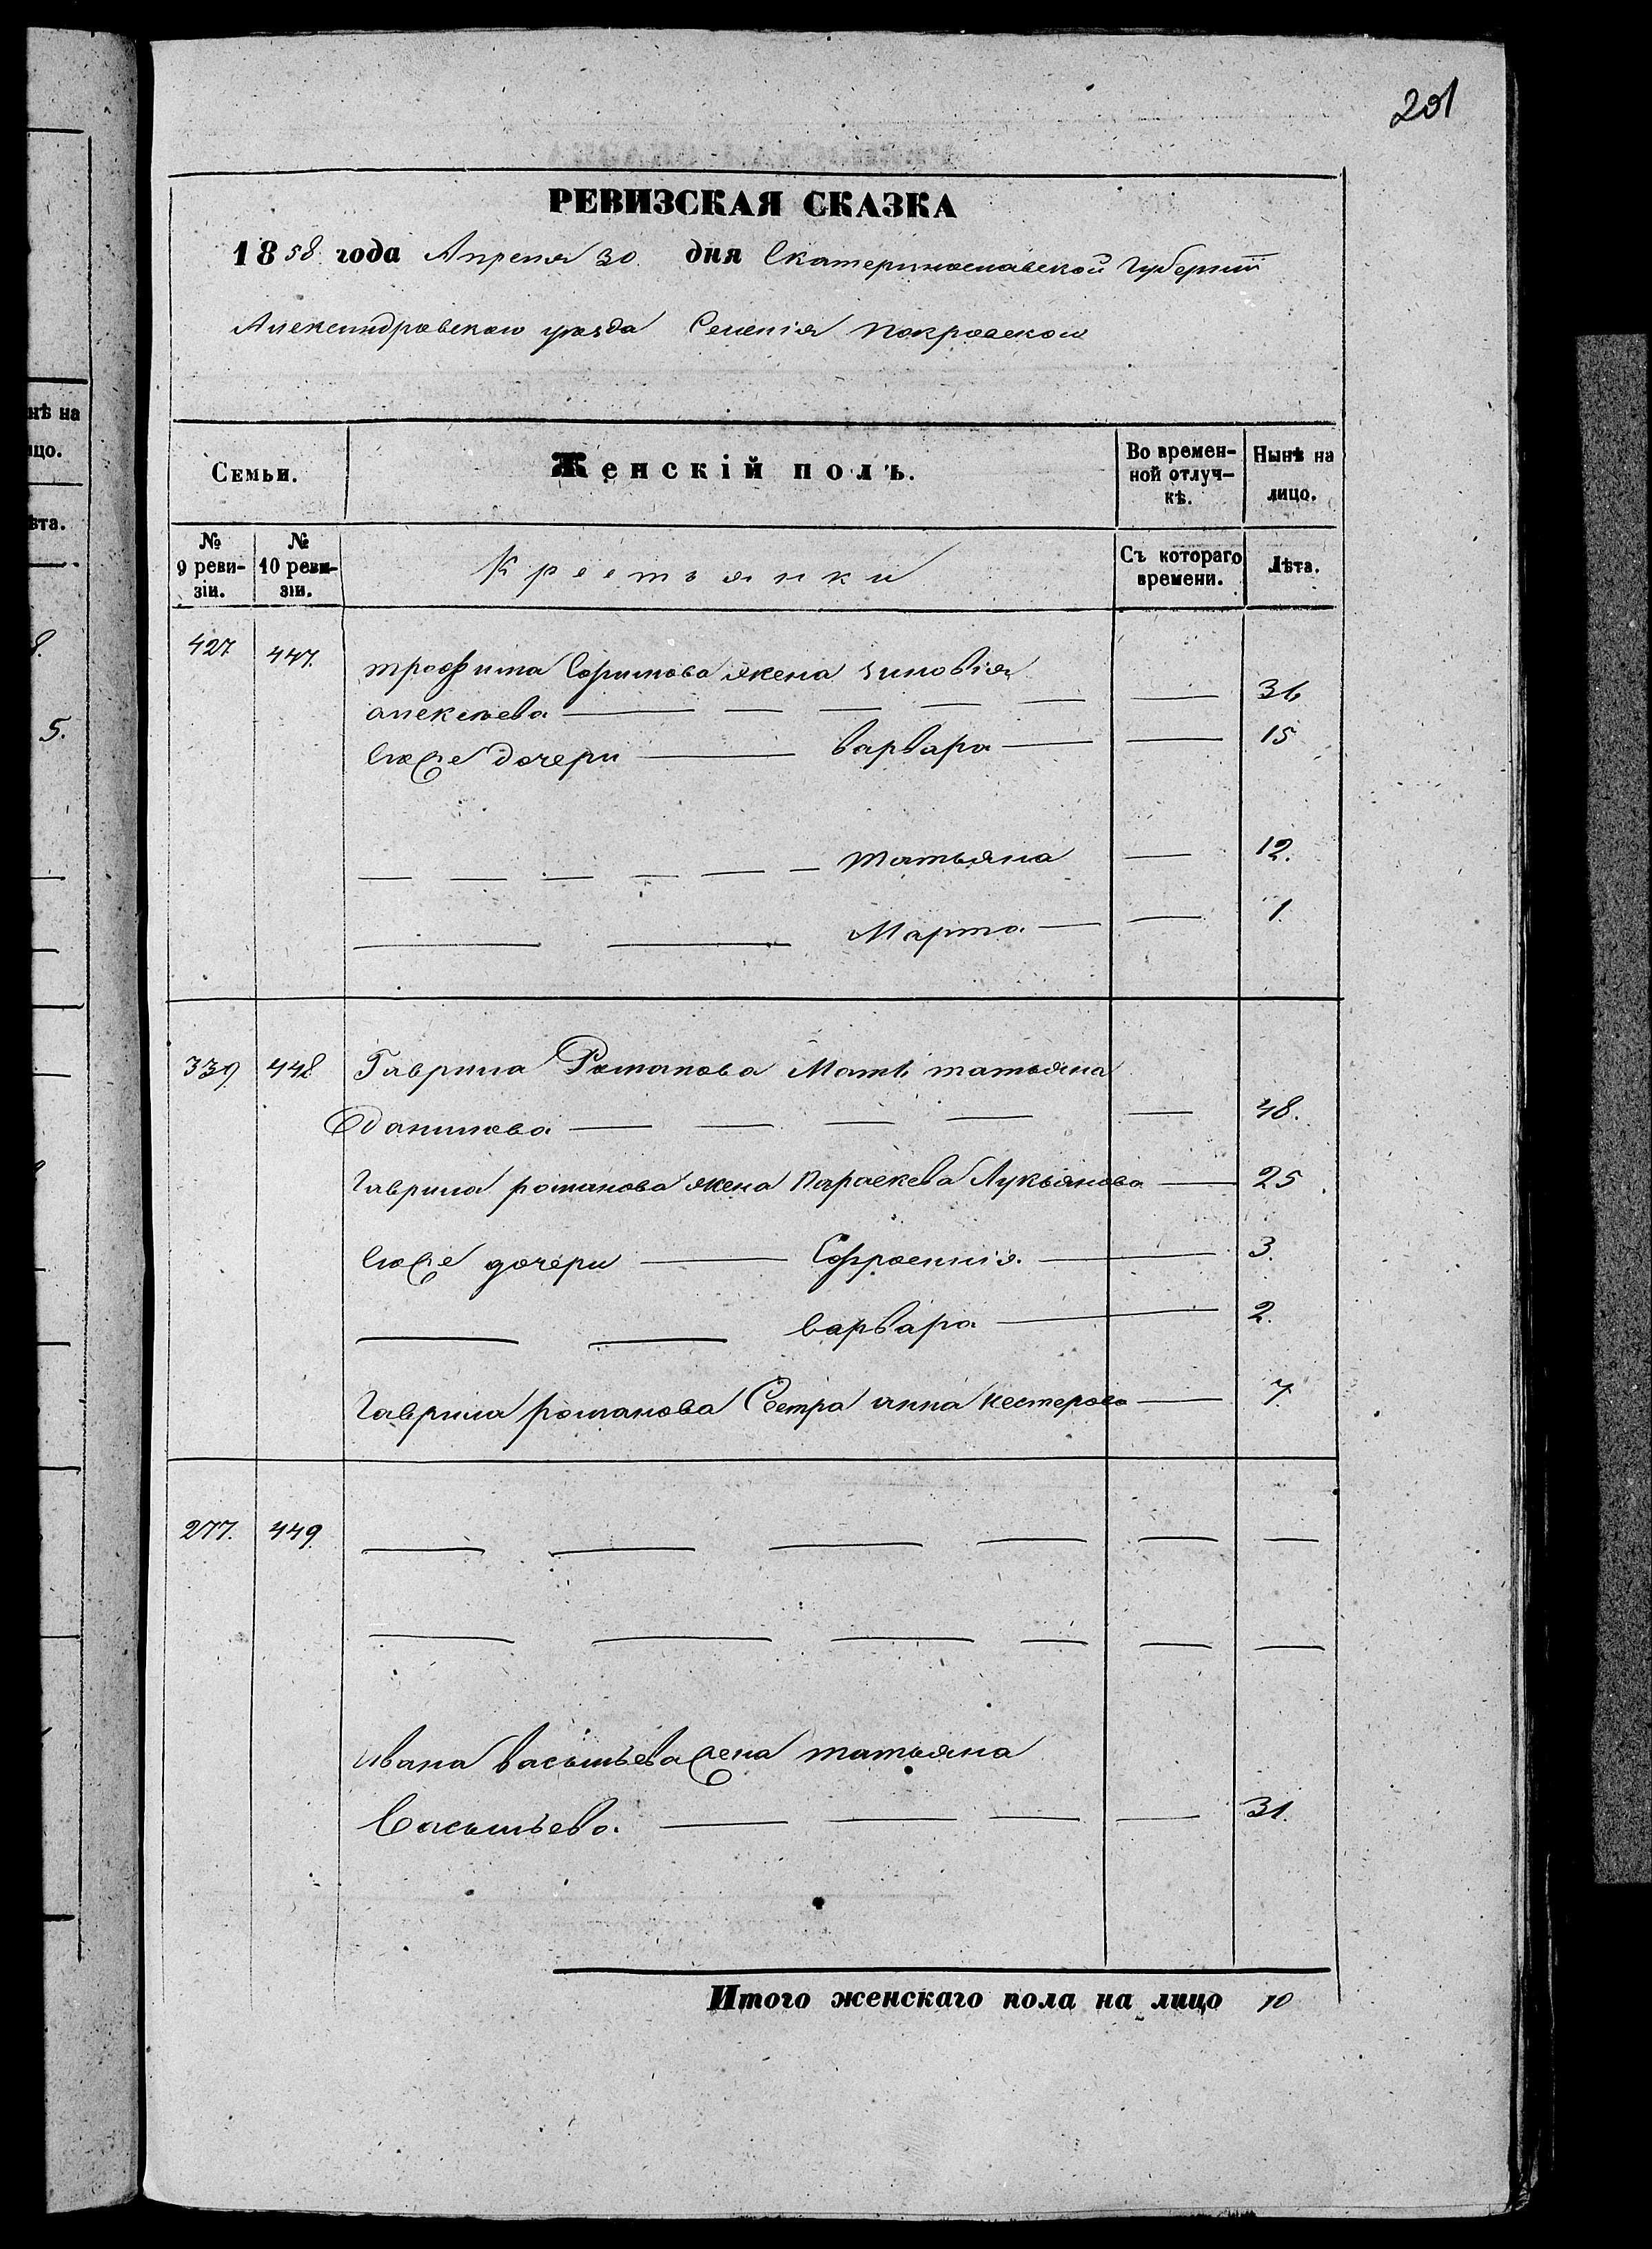 201
РЕВИЗСКАЯ СКАЗКА
1858 года Апреля 30 дня Екатеринославской Губернiи
Александровскаго уѣзда Селенiя Покровскаго
Семьи. Женскій полъ. Во времен- Нынѣ на
ной отлуч- лицо.
кѣ.
№ № Крестьянки Съ котораго Лѣта.
9 реви- 10 реви- времени.
зіи. зіи.
427 447. трофима жена зиновiя
алексѣева — — — — — — 36
его же дочери — варвара — — 15
— — — — — — татьяна — 12.
— — Марта — — 1
339 448 Гаврила Романова Мать татьяна
Данилова — — — — — 48.
Гаврила романова жена Параскева Лукьянова — 25
его же дочери — Ефросинiя — 3.
— — варвара — 2.
Гаврила романова Сестра анна нестерова — 7
277. 449 — — — — — —
— — — — — —
Ивана васильева жена татьяна
Васильева. — — — — 31.
Итого женскаго пола на лицо 10
нѣ на
ицо.
ѣта.
8.
5.